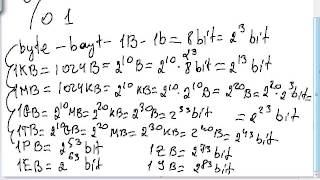 0 1
byte - bayt - 1B - 1b = 8 bit = 2^13 bit
1KB = 1024B = 2^10 B = 2^10 · 8 bit = 2^13 bit
1MB = 1024KB = 2^10 KB = 2^10 · 2^10 B = 2^20 B = 2^20 · 2^3 bit =
= 2^23 bit
1GB = 2^10 MB = 2^20 KB = 2^30 B = 2^33 bit
1TB = 2^10 GB = 2^20 MB = 2^30 KB = 2^40 B = 2^43 bit
1PB = 2^53 bit 1ZB = 2^73 bit
1EB = 2^63 bit 1YB = 2^83 bit